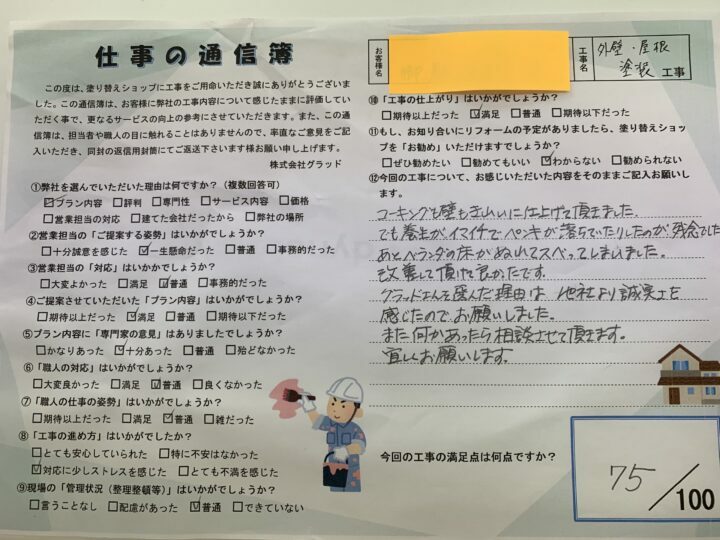 仕事の通信簿
この度は、塗り替えショップに工事をご用命いただき誠にありがとうございま
した。この通信簿は、お客様に弊社の工事内容について感じたままに評価してい
ただく事で、更なるサービスの向上の参考にさせていただきます。また、この通
信簿は、担当者や職人の目に触れることはありませんので、率直なご意見をご記
入いただき、同封の返信用封筒にてご返送下さいます様お願い申し上げます。
株式会社グラッド
①弊社を選んでいただいた理由は何ですか？（複数回答可）
☑プラン内容 □評判 □専門性 □サービス内容 □価格
□営業担当の対応 □建てた会社だったから □弊社の場所
②営業担当の「ご提案する姿勢」はいかがでしょうか？
□十分誠意を感じた ☑一生懸命だった □普通 □事務的だった
③営業担当の「対応」はいかかでしょうか？
□大変よかった □満足 ☑普通 □事務的だった
④ご提案させていただいた「プラン内容」はいかがでしょうか？
□期待以上だった ☑満足 □普通 □期待以下だった
⑤プラン内容に「専門家の意見」はありましたでしょうか？
□かなりあった ☑十分あった □普通 □殆どなかった
⑥「職人の対応」はいかがでしょうか？
□大変良かった □満足 ☑普通 □良くなかった
⑦「職人の仕事の姿勢」はいかがでしょうか？
□期待以上だった □満足 ☑普通 □雑だった
⑧「工事の進め方」はいかがでしたか？
□とても安心していられた □特に不安はなかった
☑対応に少しストレスを感じた □とても不満を感じた
⑨現場の「管理状況（整理整頓等）」はいかがでしょうか？
□言うことなし □配慮があった ☑普通 □できていない
お客様名
工事名
外壁・屋根
塗装 工事
⑩「工事の仕上がり」はいかがでしょうか？
□期待以上だった ☑満足 □普通 □期待以下だった
⑪もし、お知り合いにリフォームの予定がありましたら、塗り替えショッ
プを「お勧め」いただけますでしょうか？
□ぜひ勧めたい □勧めてもいい ☑わからない □勧められない
⑫今回の工事について、お感じいただいた内容をそのままご記入お願いし
ます。
コーキングも壁もきれいに仕上げて頂きました。
でも養生がイマイチでペンキが落ちていたりしたのが残念でした
あとベランダの床がぬれてスベってしまいました。
改善して頂けて良かったです。
グラッドさんを選んだ理由は他社より誠実さを
感じたのでお願いしました。
また何かあったら相談させて頂きます。
宜しくお願いします。
今回の工事の満足点は何点ですか？
75/100